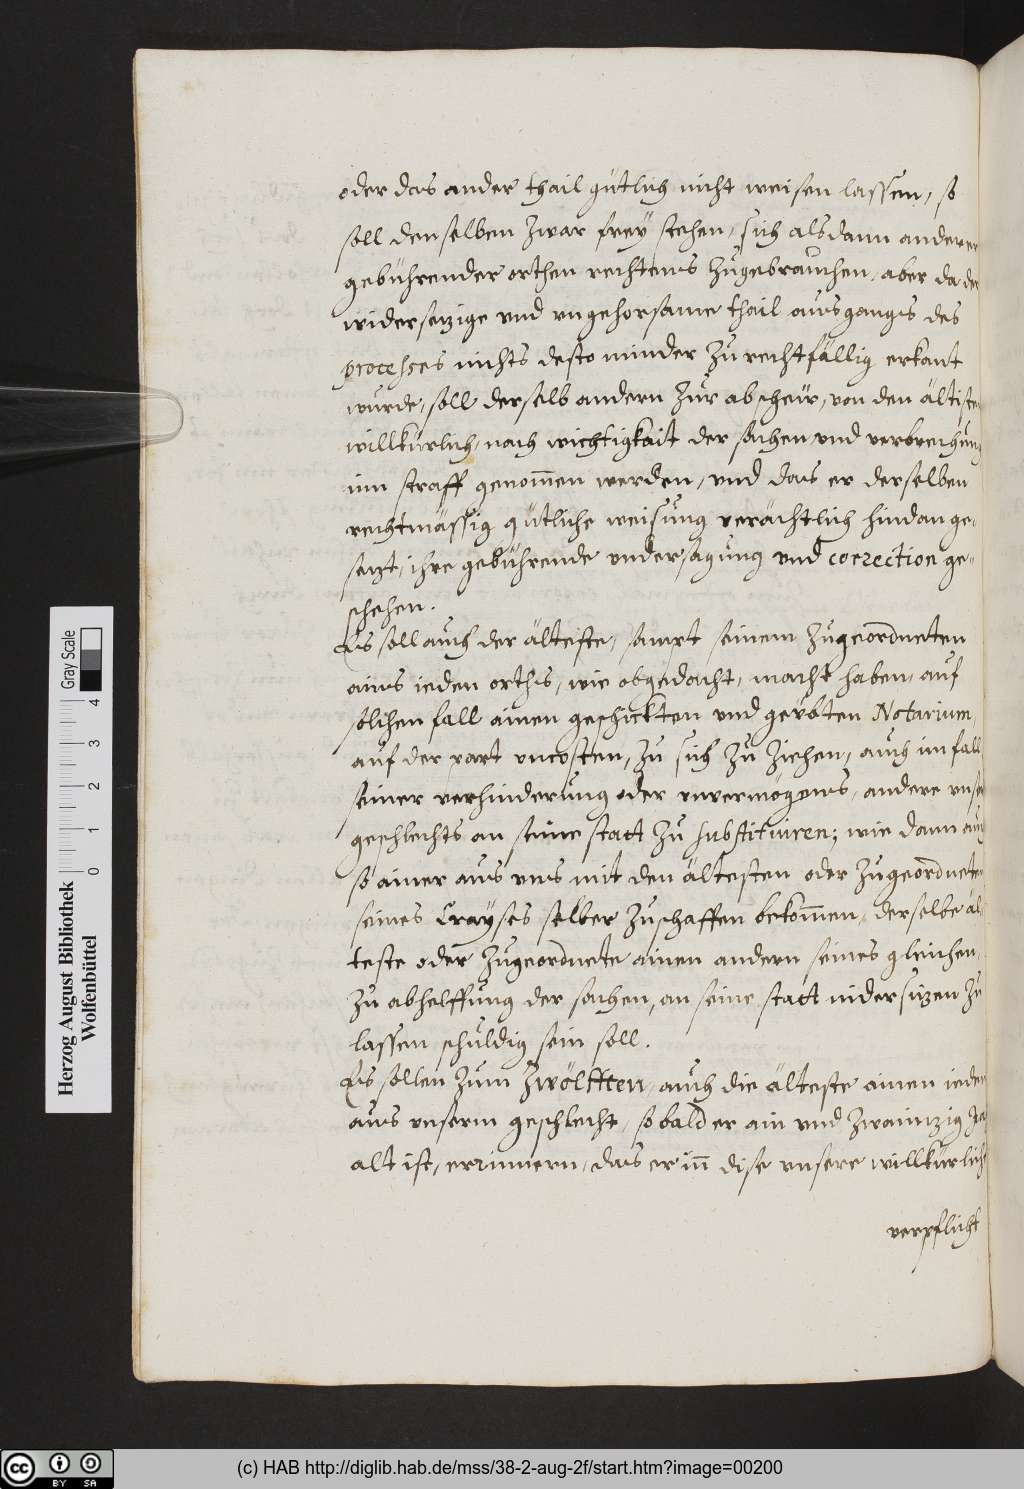 oder das ander thail gütlich nicht weisen lassen, so
soll denselben zwar frey stehen, sich alsdann anderer
gebührender orthen rechtens zugebrauchen, aber da der
widersezige und ungehorsame thail ausgangs des
processes nichts desto minder zu rechtfällig erkant
wurde, soll derselb andern zur abscheür, von den ältisten
willkürlich, nach wichtigkait der sachen und verbrechung
inn straff genom̄en werden, und das er derselben
rechtmässig gütliche weisung verächtlich hindan ge-
sezt, ihre gebührende undersagung und correction ge-
schehen.
Es soll auch der älteiste, sampt seinem zugeordneten
ains ieden orths, wie obgedacht, macht haben, auf
solchen fall ainen geschickten und geübten Notarium,
auf der part uncosten, zu sich zu ziehen, auch im fall
seiner verhinderung oder unvermögens, andere unsers
geschlechts an seine statt zu substituiren; wie dann auch
so ainer aus uns mit den ältesten oder zugeordneten
seines Crayses selber zuschaffen bekom̄en, derselbe äl-
teste oder zugeordnete ainen andern seines gleichen,
zu abhelffung der sachen, an seine statt nidersizen zu
lassen schuldig sein soll.
Es sollen zum Zwölfften, auch die älteste ainen ieden
aus unserm geschlecht, so bald er ain und zwainzig Jar
alt ist, errinnern, das er in̄ dise unsere willkürlich
verpflicht
Herzog August Bibliothek
Wolfenbüttel
0 1 2 3 4
Gray Scale
cc BY SA
(c) HAB http://diglib.hab.de/mss/38-2-aug-2f/start.htm?image=00200